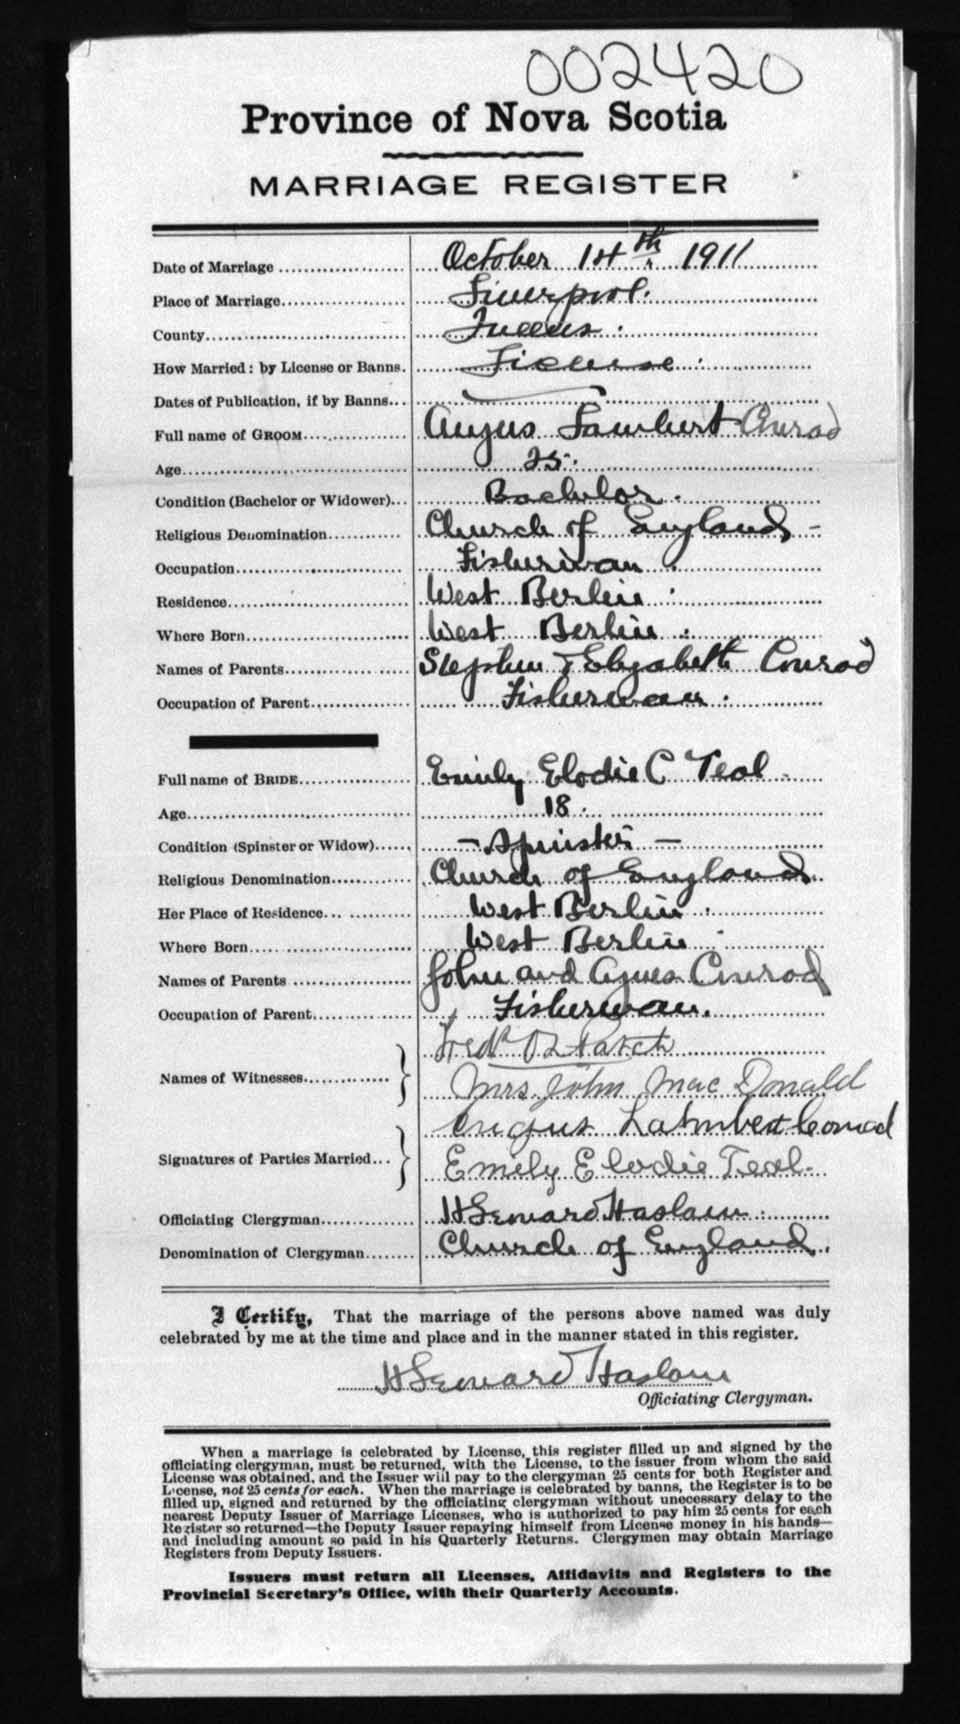 002420
Province of Nova Scotia
MARRIAGE REGISTER
Date of Marriage October 14th 1911
Place of Marriage Liverpool.
County Queens.
How Married: by License or Banns. License
Dates of Publication, if by Banns
Full name of GROOM Angus Lambert Conrad
Age 25.
Condition (Bachelor or Widower) Bachelor.
Religious Denomination Church of England -
Occupation Fisherman
Residence West Berlin
Where Born West Berlin
Names of Parents Stephen & Elizabeth Conrad
Occupation of Parent Fisherman.
Full name of BRIDE Emily Elodie C Teal
Age 18.
Condition (Spinster or Widow) - Spinster -
Religious Denomination Church of England
Her Place of Residence West Berlin
Where Born West Berlin
Names of Parents John and Agnes Conrad
Occupation of Parent Fisherman.
Fred
Names of Witnesses Mrs. John Mac Donald
Angus Lahmbert Conrad
Signatures of Parties Married Emely Elodie Teal.
Officiating Clergyman H Seward Haslam
Denomination of Clergyman Church of England.
I Certify, That the marriage of the persons above named was duly
celebrated by me at the time and place and in the manner stated in this register.
H Seward Haslam
Officiating Clergyman.
When a marriage is celebrated by License, this register filled up and signed by the
officiating clergyman, must be returned, with the License, to the issuer from whom the said
License was obtained, and the Issuer will pay to the clergyman 25 cents for both Register and
License, not 25 cents for each. When the marriage is celebrated by banns, the Register is to be
filled up, signed and returned by the officiating clergyman without unnecessary delay to the
nearest Deputy Issuer of Marriage Licenses, who is authorized to pay him 25 cents for each
Register so returned—the Deputy Issuer repaying himself from License money in his hands—
and including amount so paid in his Quarterly Returns. Clergymen may obtain Marriage
Registers from Deputy Issuers.
Issuers must return all Licenses, Affidavits and Registers to the
Provincial Secretary's Office, with their Quarterly Accounts.